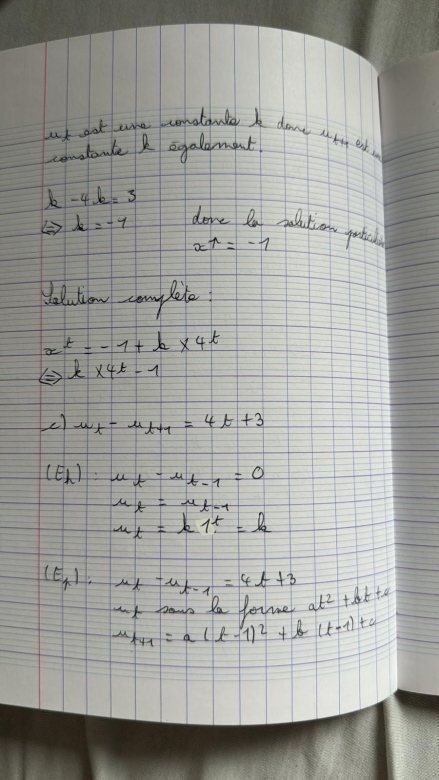 ut est une constante k donc ut+1 est une
constante k également.
k - 4k = 3
⇔ k = -1 donc la solution particulière
x^* = -1
Solution complète :
x^t = -1 + k × 4^t
⇔ k × 4^t - 1
c) u_t - u_{t+1} = 4t + 3
(Eh) : u_t - u_{t-1} = 0
u_t = u_{t-1}
u_t = k 1^t = k
(Ep) : u_t - u_{t-1} = 4t + 3
u_t sous la forme at² + bt + c
u_{t+1} = a (t-1)² + b (t-1) + c